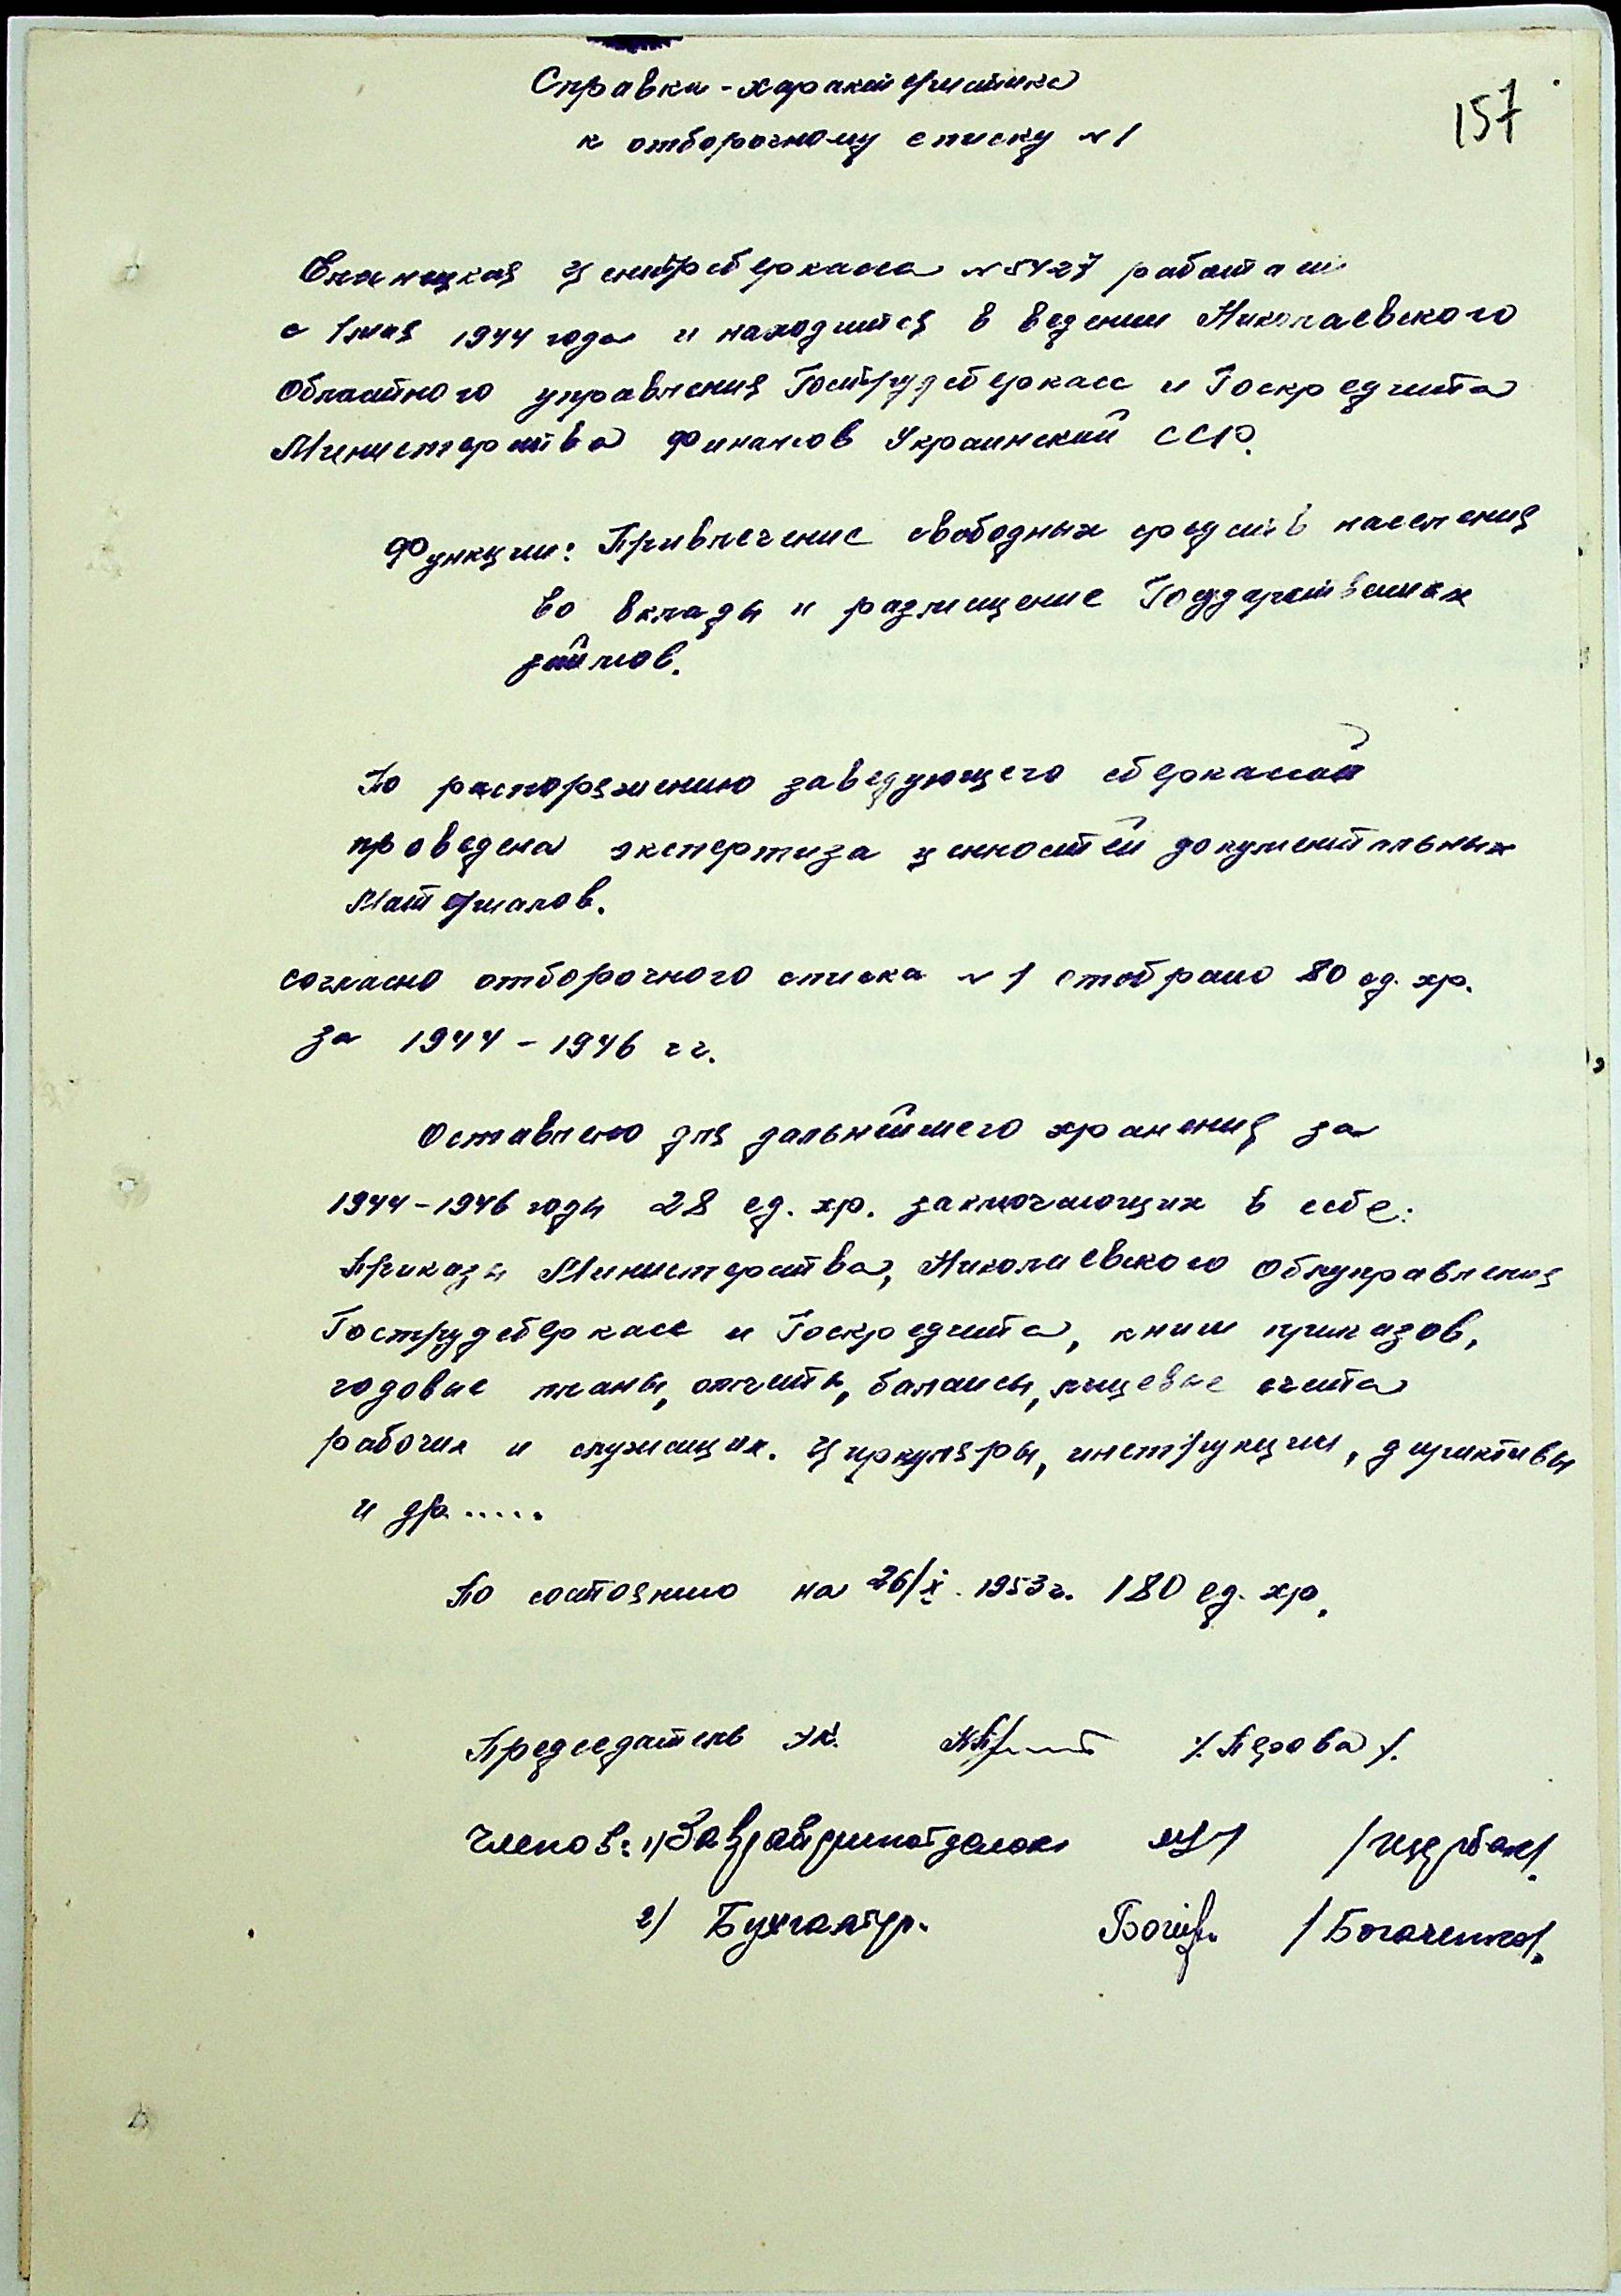 Справка-характеристика
к отборочному списку №1
157
Еланецкая Центрсберкасса №5427 работает
с 1 мая 1944 года и находится в ведении Николаевского
Областного управления Гострудсберкасс и Госкредита
Министерства Финансов Украинской ССР.
Функции: Привлечение свободных средств населения
во вклады и размещение Государственных
займов.
По распоряжению заведующего сберкассой
проведена экспертиза ценностей документальных
Материалов.
Согласно отборочного списка №1 отобрано 80 ед. хр.
за 1944-1946 гг.
Оставлено для дальнейшего хранения за
1944-1946 годы 28 ед. хр. заключающих в себе:
Приказы Министерства, Николаевского Облуправления
Гострудсберкасс и Госкредита, книги приказов,
годовые планы, отчеты, балансы, лицевые счета
рабочих и служащих. Циркуляры, инструкции, директивы
и др.....
По состоянию на 26/X. 1953г. 180 ед. хр.
Председатель ЭК.
Членов: 1)
/Щербак/.
2) Бухгалтер. /Богаченко/.